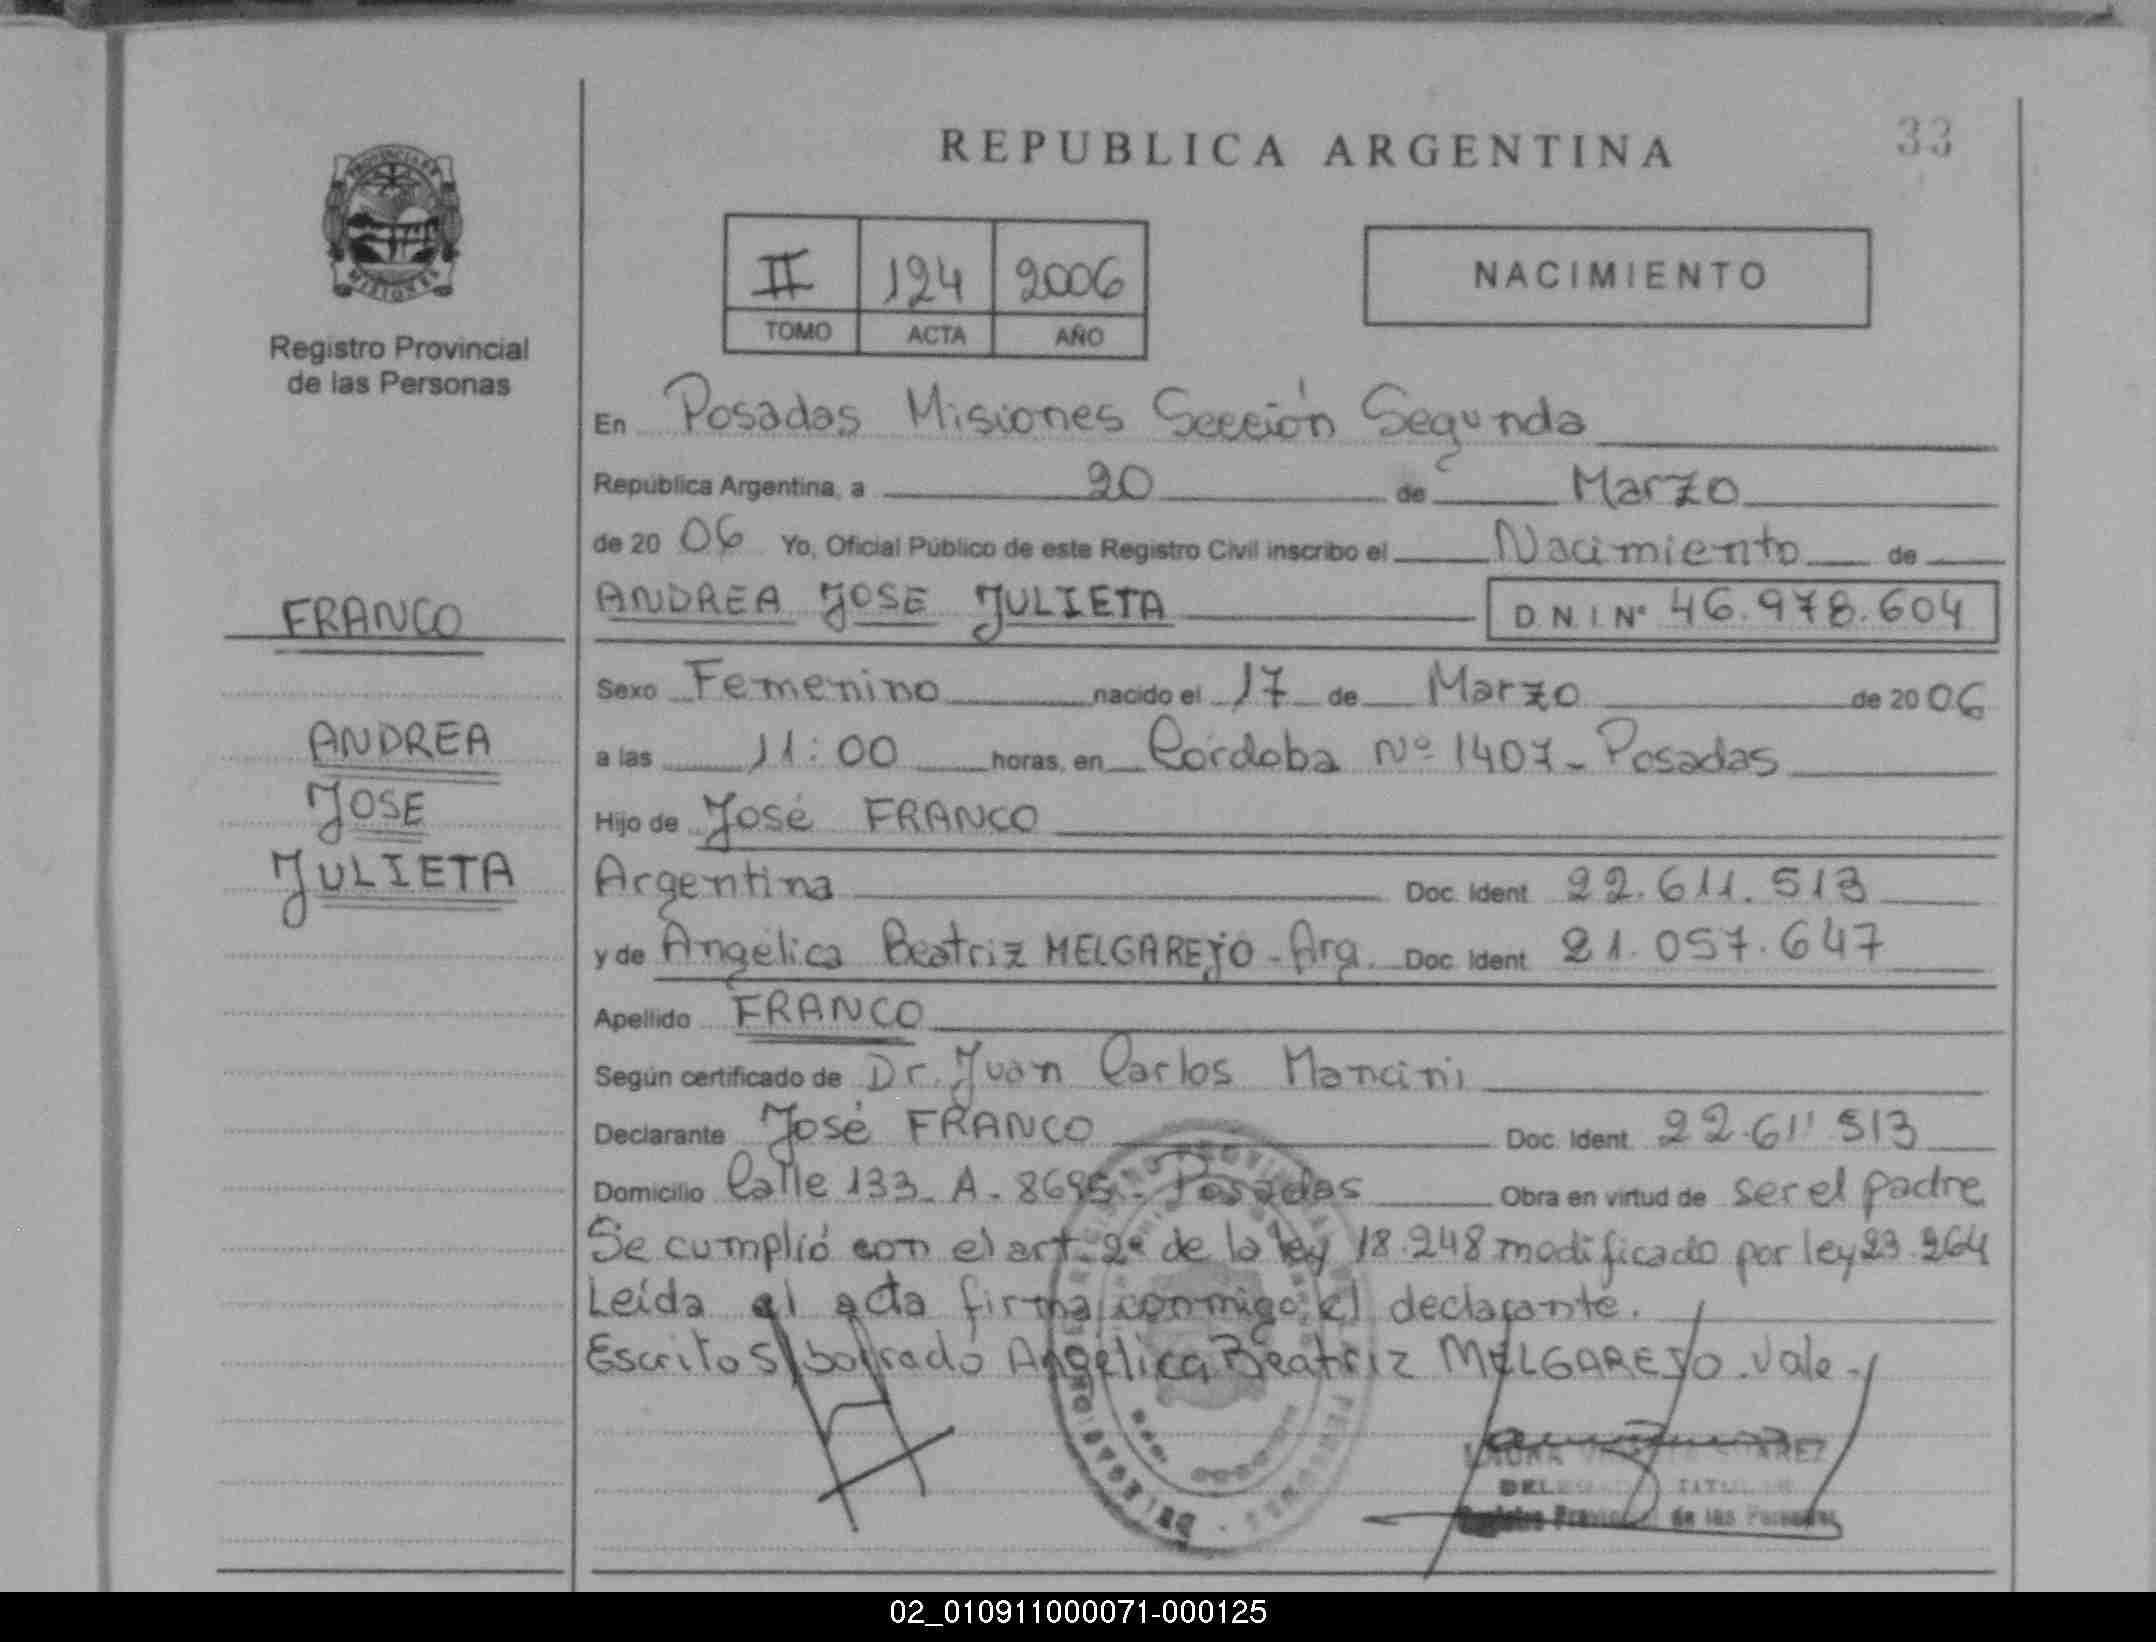 REPUBLICA ARGENTINA
33
PROVINCIA DE
MISIONES
Registro Provincial
de las Personas
II 124 2006
TOMO ACTA AÑO
NACIMIENTO
En Posadas Misiones Sección Segunda
República Argentina, a 20 de Marzo
de 20 06 Yo, Oficial Público de este Registro Civil inscribo el Nacimiento de
ANDREA JOSE JULIETA D.N.I. Nº 46.978.604
FRANCO
ANDREA
JOSE
JULIETA
Sexo Femenino nacido el 17 de Marzo de 20 06
a las 11:00 horas, en Córdoba Nº 1407 - Posadas
Hijo de José FRANCO
Argentina Doc. Ident 22.611.513
y de Angélica Beatriz MELGAREJO - Arg. Doc. Ident 21.057.647
Apellido FRANCO
Según certificado de Dr. Juan Carlos Mancini
Declarante José FRANCO Doc. Ident. 22.611.513
Domicilio Calle 133 - A - 8695 - Posadas Obra en virtud de ser el padre
Se cumplió con el art. 2º de la ley 18.248 modificado por ley 23.264
Leída el acta firma conmigo el declarante.
Escritos/borrado Angélica Beatriz MELGAREJO. Vale.-
TITULAR
Registro Provincial de las Personas
02_010911000071-000125